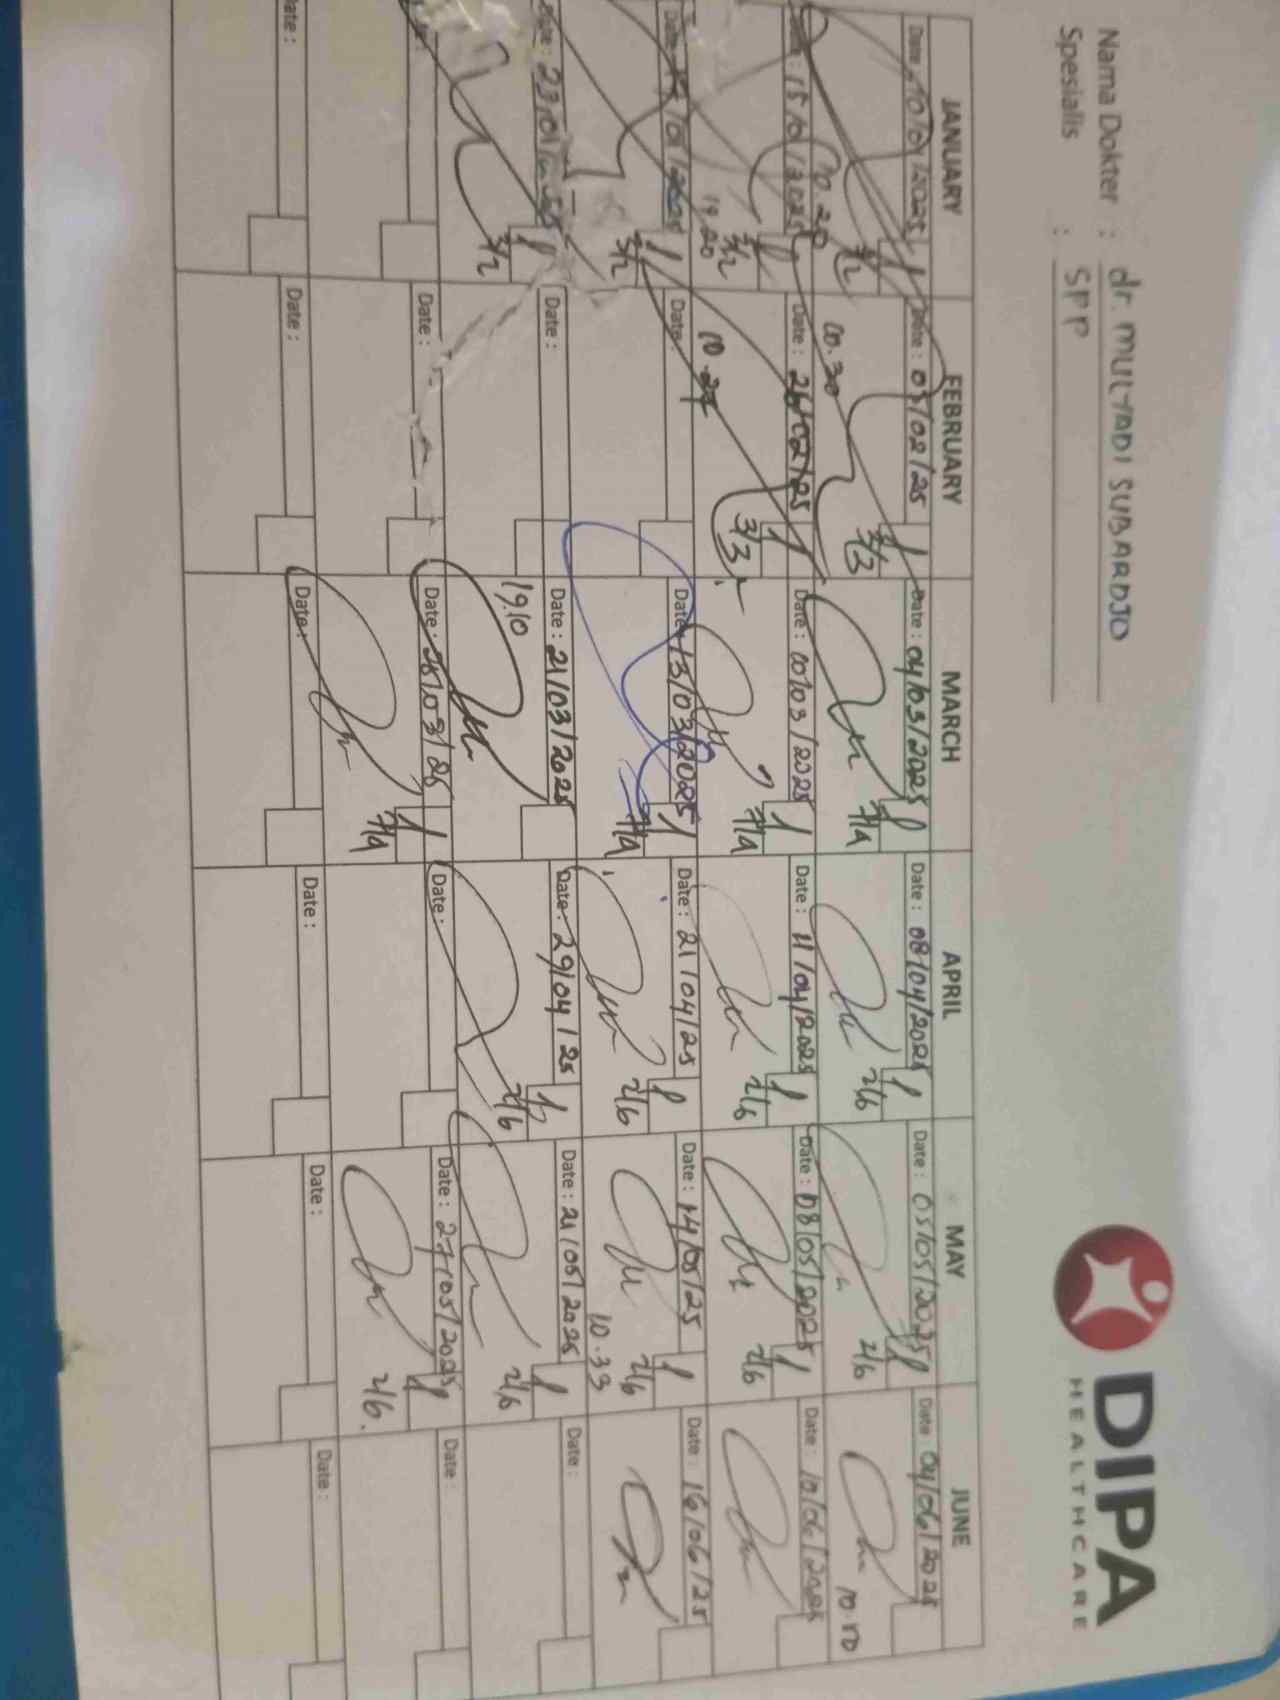 DIPA
HEALTHCARE
Nama Dokter : dr. MULYADI SUBARDJO
Spesialis : SPP
JANUARY FEBRUARY MARCH APRIL MAY JUNE
Date : 10/01/2025 Date : 05/02/25 Date : 04/03/2025 Date : 08/04/2025 Date : 05/05/2025 Date : 04/06/2025
3/2 10.30 3/3 7/4 2/6 2/6 10.10
10.20
Date : 15/01/2025 Date : 26/02/25 Date : 10/03/2025 Date : 11/04/2025 Date : 08/05/2025 Date : 10/06/2025
3/2 3/3 7/4 2/6 2/6
19.20 10.27
Date : /01/2025 Date : Date : 13/03/2025 Date : 21/04/25 Date : 14/05/25 Date : 16/06/25
3/2 7/4 2/6 2/6
10.33
Date : 23/01/2025 Date : Date : 21/03/2025 Date : 29/04/25 Date : 21/05/2025 Date :
3/2 19.10 2/6 2/6
Date : Date : Date : 28/03/25 Date : Date : 27/05/2025 Date :
7/4 2/6.
Date : Date : Date : Date : Date : Date :